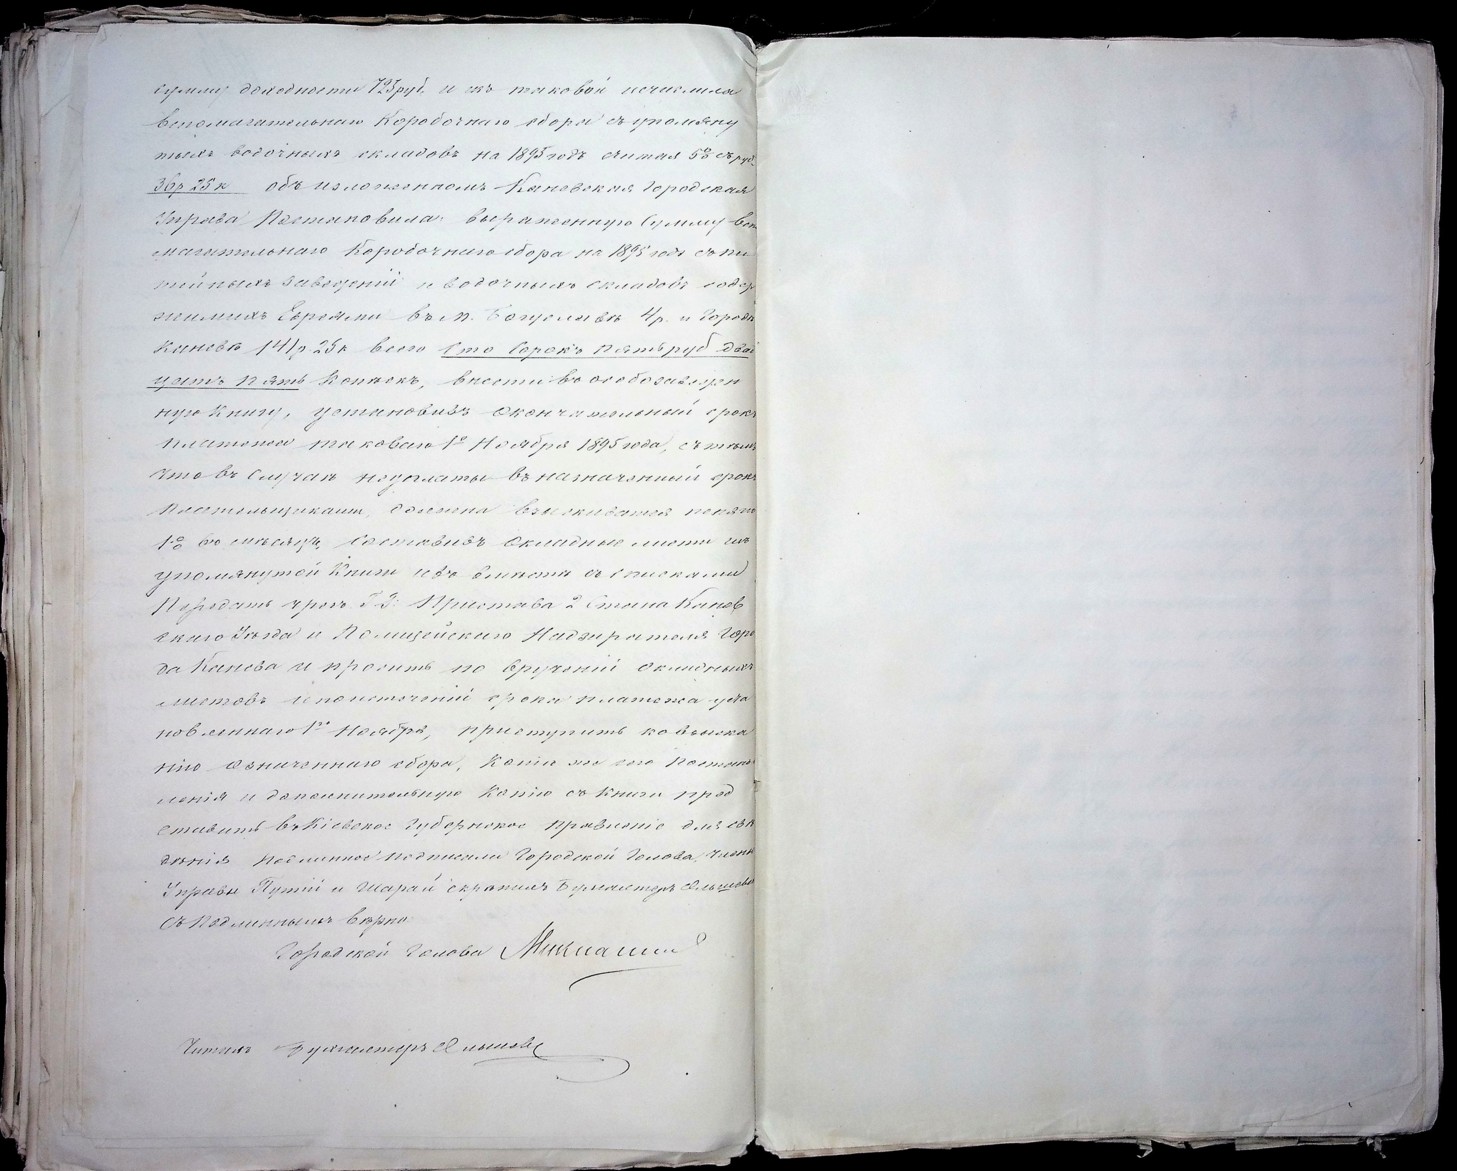 сумму доходности 725 руб. и съ таковой исчислила
вспомагательнаго Коробочнаго сбора съ упомяну
тыхъ водочныхъ складовъ на 1895 годъ считая 5% съ руб.
36 р 25 к объ изложенномъ Каневская Городская
Управа Постановила: выраженную Сумму вспо
магательнаго Коробочнаго сбора на 1895 годъ съ пи
тейныхъ заведеній и водочныхъ складовъ содер
жимыхъ Евреями въ м. Богуславѣ 4 р. и Городѣ
Каневѣ 141 р. 25 к всего Сто Сорокъ пять руб двад
цать пять Копѣекъ, внести въ особозаведен
ную Книгу, установивъ окончательный срокъ
платежа таковаго 1го Ноября 1895 года, съ тѣмъ
что въ Случаѣ неуплаты въ назначенный срокъ
плательщиками должна взыскиватся пеня по
1% въ мѣсяцъ, Составивъ Окладные листы изъ
упомянутой Книги съ списками
Передать чрезъ Г.Г. Пристава 2 Стана Канев
скаго Уѣзда и Полицейскаго Надзирателя Горо
да Канева и просить по врученіи окладныхъ
листовъ и по истеченіи срока платежа уста
новленнаго 1го Ноября, приступить ко взыска
нію означеннаго сбора, Копію же сего Постанов
ленія и дополнительную Копію съ Книги пред
ставить въ Кіевское Губернское правленіе для свѣ
дѣнія подлинное подписали Городской Голова, Члены
Управы Путій и Шарай скрѣпилъ Бухгалтеръ
Съ Подлиннымъ вѣрно
Городской Голова
Читалъ Бухгалтеръ